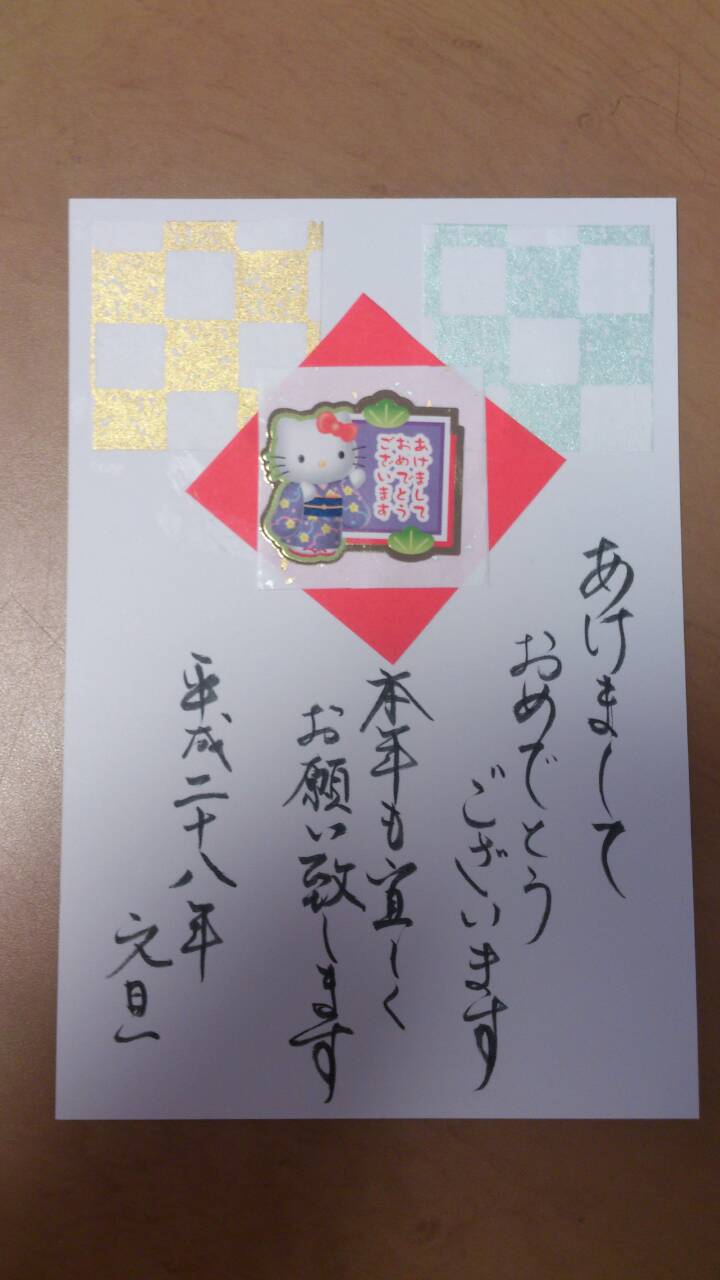 あけまして
おめでとう
ございます
あけまして
おめでとう
ございます
本年も宜しく
お願い致します
平成二十八年
元旦